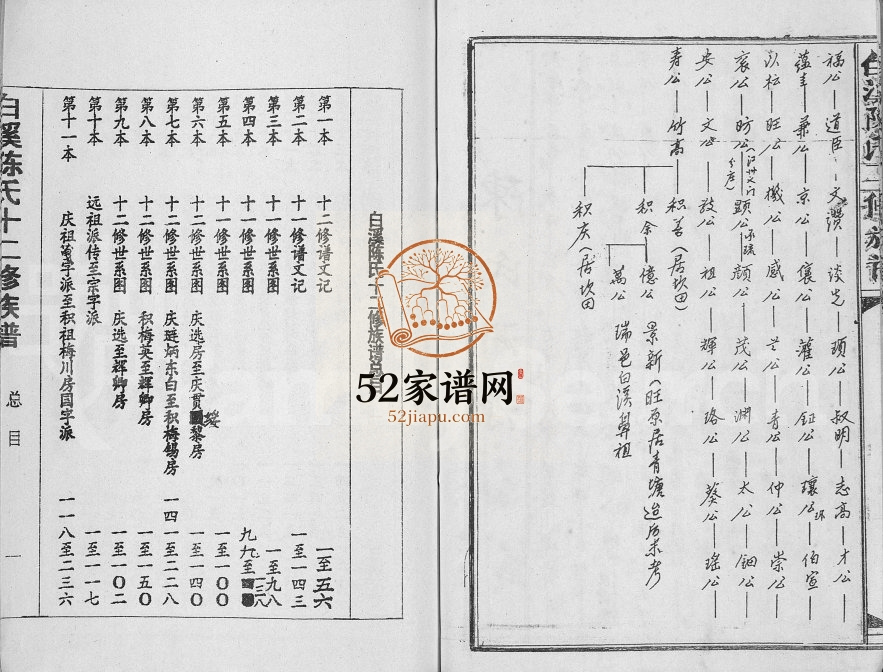 福公—道臣—文讚—淡光—頊公—叔明—志高—才公—
蕴丰—兼公—京公—儴公—灌公—鉦公—瓌公—伯宣—
以松—旺公—機公—感公—兰公—青公—仲公—崇公—
衮公—昉公—顕公—顔公—茂公—渊公—太公—钿公—
安公—文公—放公—祖公—輝公—珞公—葵公—瑤公—
寿公—竹高
积善(居坎田)
积余—億公 景新(旺原居青塘
萬公 瑞邑白溪鼻祖
积庆(居坎田
白溪陈氏十二修族谱总目
第一本 十二修谱文记 一至五六
第二本 十一修谱文记 一至一四三
第三本 十一修世系图 一至九八
第四本 十一修世系图 九九至一三八
第五本 十一修世系图 一至一00
第六本 十二修世系图 庆选房至庆贯綬黎房 一至一四0
第七本 十二修世系图 庆琏炳东白至积梅锡房 一四一至二二八
第八本 十二修世系图 积梅英至辉卿房 一至一五0
第九本 十二修世系图 庆选至辉卿房 一至一0二
第十本 远祖派传至宗字派 一至一一七
第十一本 庆祖字派至积祖梅川房国字派 一一八至二三六
白溪陈氏十二修族谱 总目 一
52家谱网
52jiapu.com